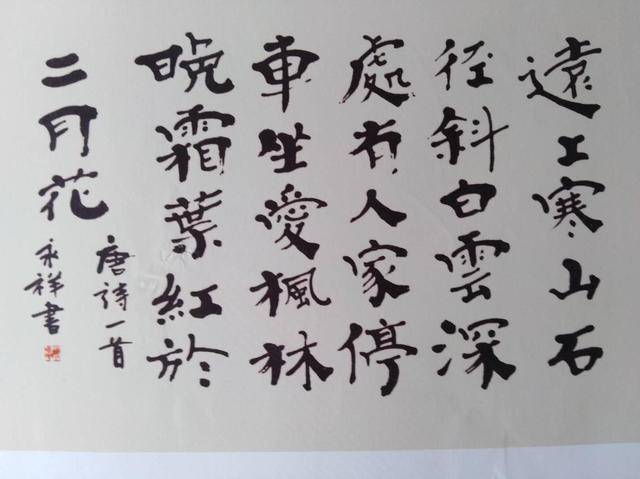 遠上寒山石
徑斜白雲深
處有人家停
車坐愛楓林
晚霜葉紅於
二月花
唐詩一首
永祥書